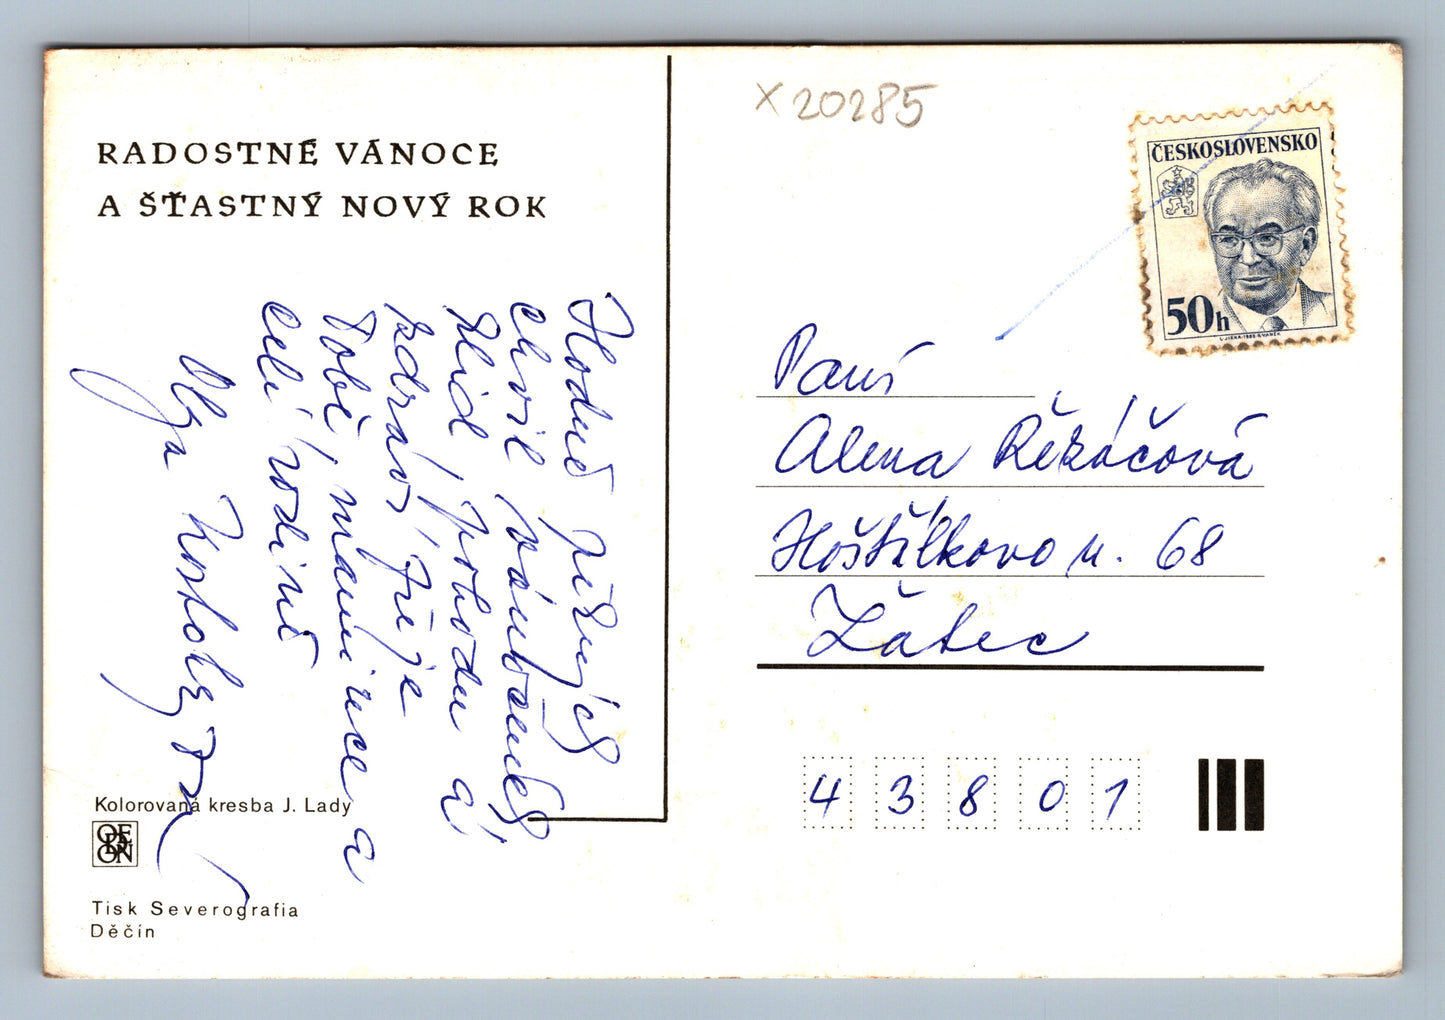 RADOSTNÉ VÁNOCE
A ŠŤASTNÝ NOVÝ ROK
Hodně pěkných
chvil vánočních
klid, pohodu a
zdraví, přeje
Tobě, mamince a
celé rodině
Olga
Kolorovaná kresba J. Lady
ODEON
Tisk Severografia
Děčín
X 20285
ČESKOSLOVENSKO
50h
Paní
Alena Řežáčová
Hošťálkovo n. 68
Žatec
43801